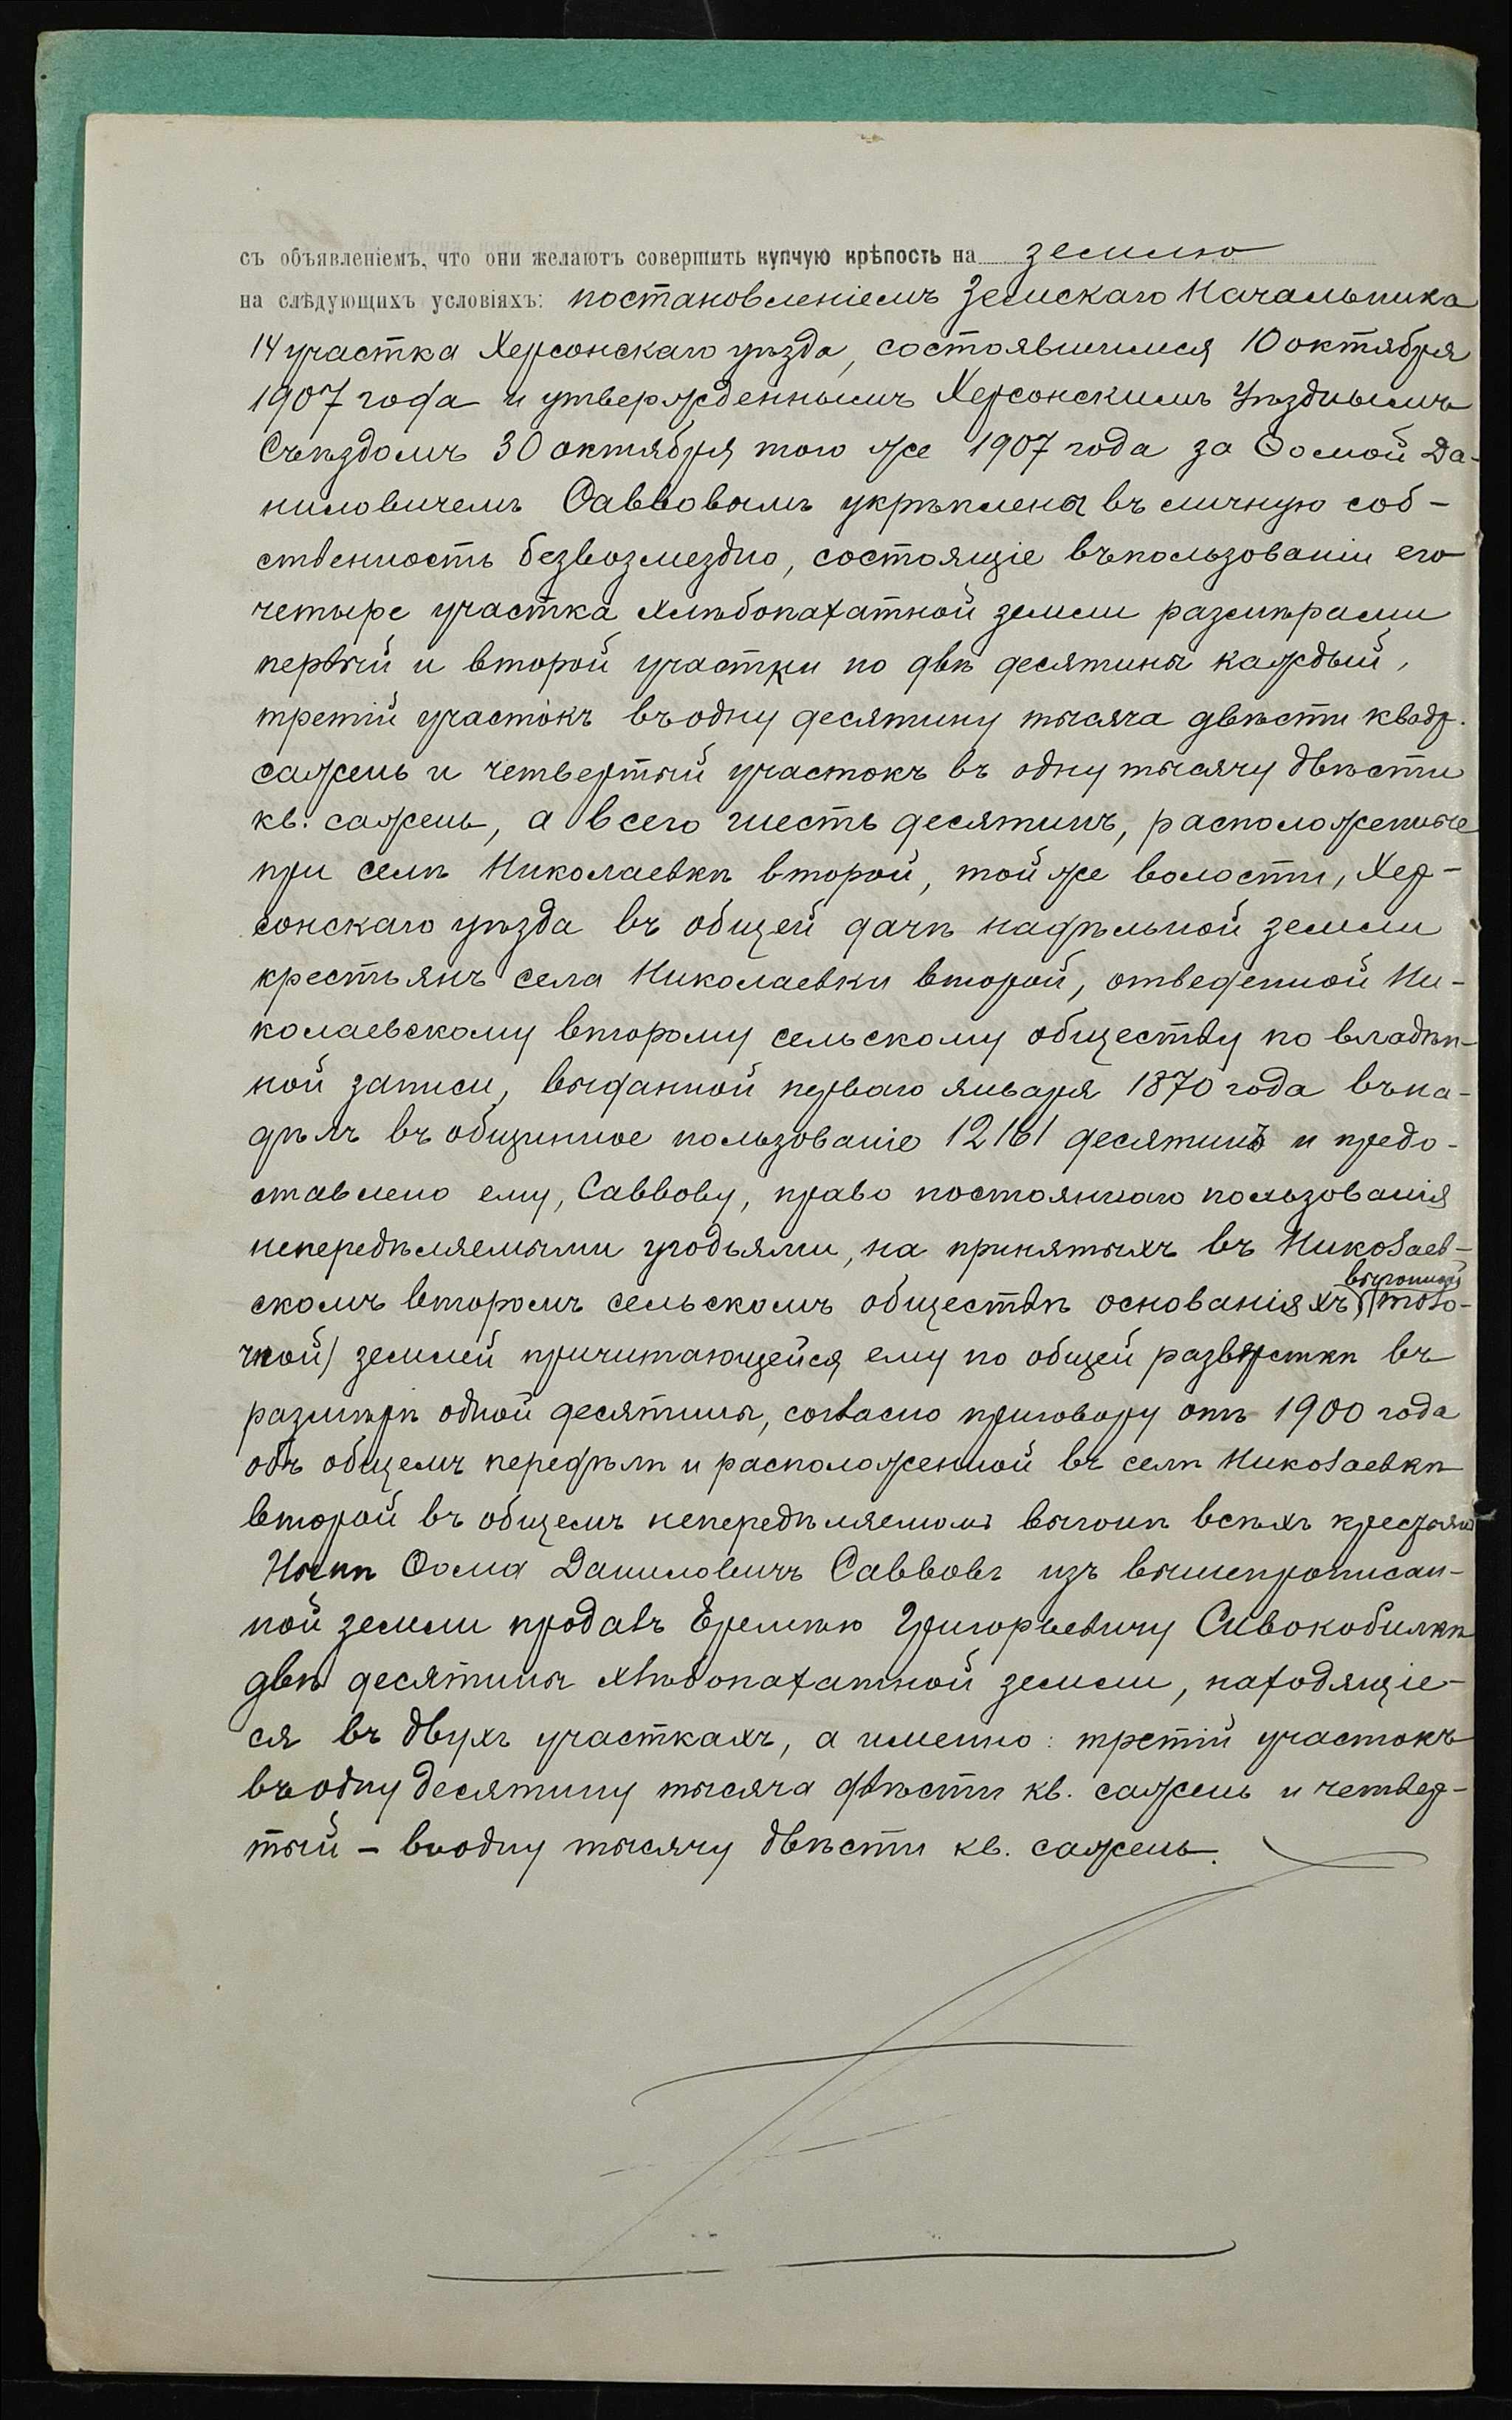 съ объявленіемъ, что они желаютъ совершить купчую крѣпость на землю
на слѣдующихъ условіяхъ: постановленіемъ Земскаго Начальника
14 участка Херсонскаго уѣзда, состоявшимся 10 октября
1907 года и утвержденнымъ Херсонскимъ Уѣзднымъ
Съѣздомъ 30 октября того же 1907 года за Ѳомой Да-
ниловичемъ Саввовымъ укрѣплены въ личную соб-
ственность безвозмездно, состоящіе въ пользованіи его
четыре участка хлѣбопахатной земли размѣрами
первый и второй участки по двѣ десятины каждый,
третій участокъ въ одну десятину тысяча двѣсти квадр.
сажень и четвертый участокъ въ одну тысячу двѣсти
кв. сажень, а всего шесть десятинъ, расположенные
при селѣ Николаевкѣ второй, той же волости, Хер-
сонскаго уѣзда въ общей дачѣ надѣльной земли
крестьянъ села Николаевки второй, отведенной Ни-
колаевскому второму сельскому обществу по владѣн-
ной записи, выданной перваго января 1870 года въ на-
дѣлъ въ общинное пользованіе 12161 десятинъ и предо-
ставлено ему, Саввову, право постояннаго пользованія
непередѣляемыми угодьями, на принятыхъ въ Николаев-
скомъ второмъ сельскомъ обществѣ основаніяхъ, выгонной (толо-
чной) землей причитающейся ему по общей разверсткѣ въ
размѣрѣ одной десятины, согласно приговору отъ 1900 года
объ общемъ передѣлѣ и расположенной въ селѣ Николаевкѣ
второй въ общемъ непередѣляемомъ выгонѣ всѣхъ крестьянъ
Нынѣ Ѳома Даниловичъ Саввовъ изъ вышепрописан-
ной земли продалъ Еремѣю Григорьевичу Сивокобилкѣ
двѣ десятины хлѣбопахатной земли, находящіе-
ся въ двухъ участкахъ, а именно: третій участокъ
въ одну десятину тысяча двѣсти кв. сажень и четвер-
тый – въ одну тысячу двѣсти кв. сажень.